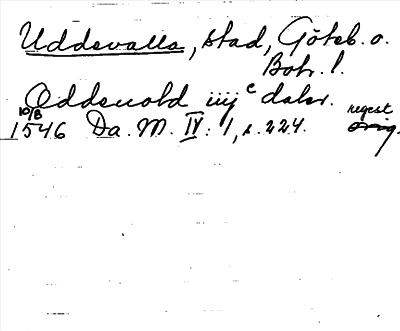 Uddevalla, stad, Göteb. o.
Boh. l.
Oddeuold iiij c daler.
10/8 regest
1546 Da. M. IV: 1, s. 224. orig.